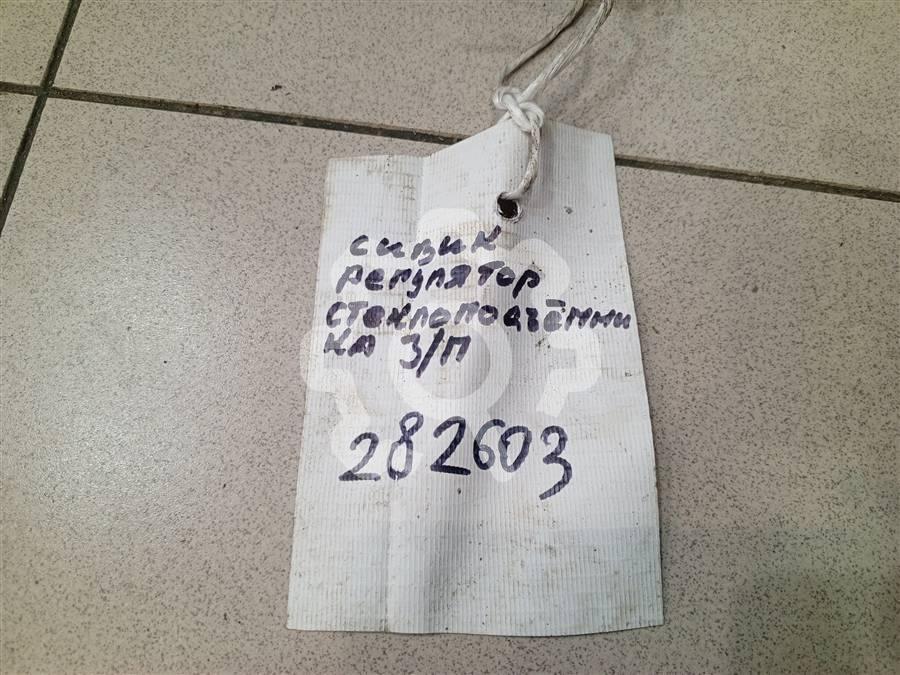 сивик
регулятор
стеклоподъёмни
ка З/П
282603